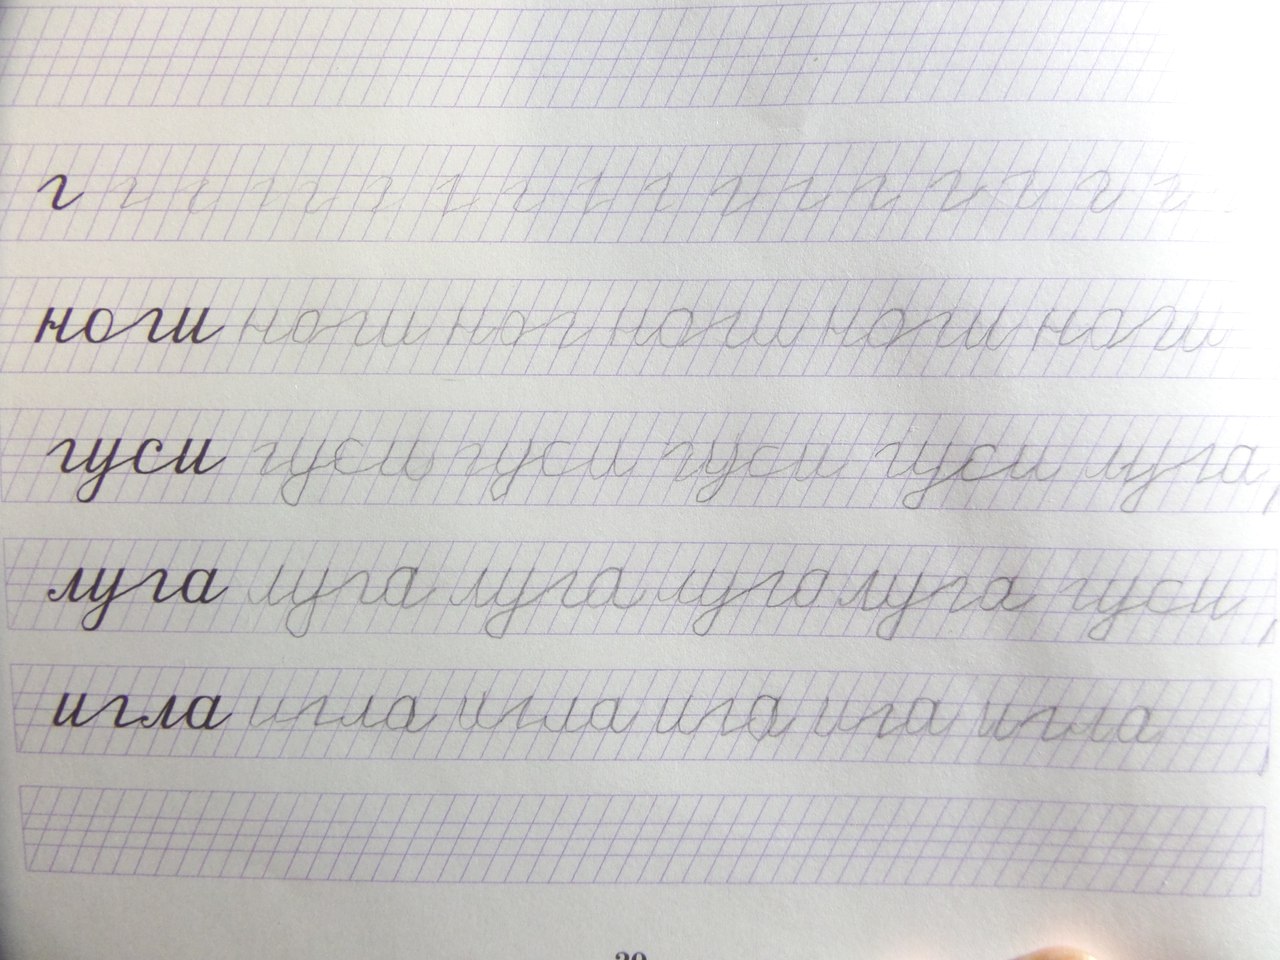 г г г г г г г г г г г г г г г г
ноги ноги ног ноги ноги ноги
гуси гуси гуси гуси гуси луга,
луга луга луга луго луга гуси,
игла игла игла ига ига игла
20